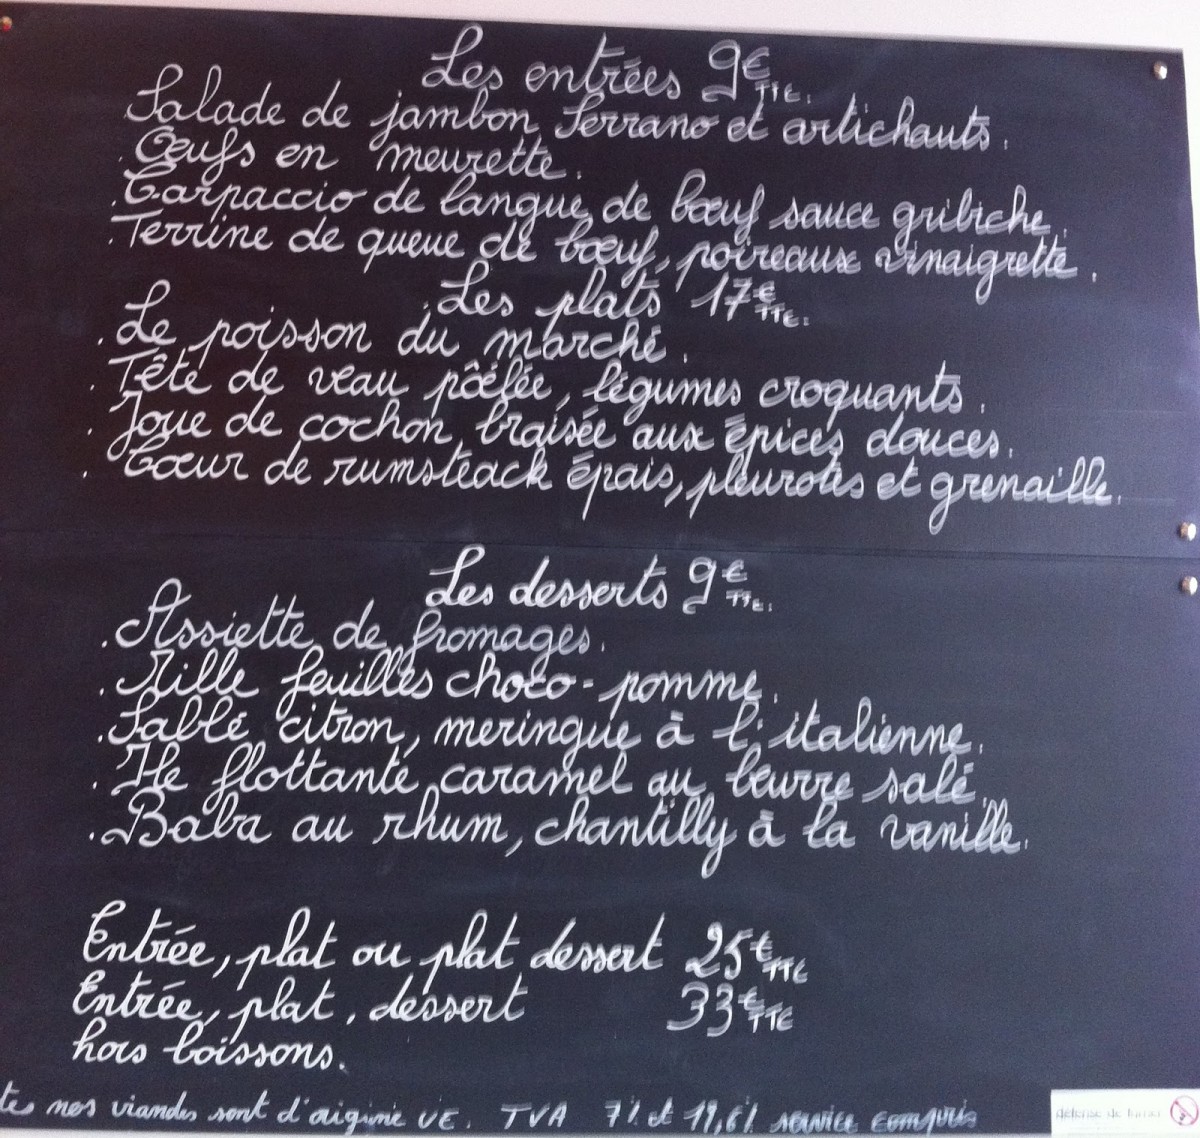 Les entrées 9€ TTC.
Salade de jambon Serrano et artichauts.
. Œufs en meurette.
. Carpaccio de langue de bœuf sauce gribiche.
. Terrine de queue de bœuf, poireaux vinaigrette.
. Les plats 17€ TTC.
. Le poisson du marché.
. Tête de veau pôêlée, légumes croquants.
. Joue de cochon braisée aux épices douces.
. Cœur de rumsteack épais, pleurotes et grenaille.
Les desserts 9€ TTC.
. Assiette de fromages.
. Mille feuilles choco-pomme.
. Sablé citron, meringue à l'italienne.
. Ile flottante caramel au beurre salé.
. Baba au rhum, chantilly à la vanille.
Entrée, plat ou plat dessert 25€ TTC
Entrée, plat, dessert 33€ TTC
hors boissons.
tes nos viandes sont d'origine UE. TVA 7% et 19,6% service compris
défense de fumer